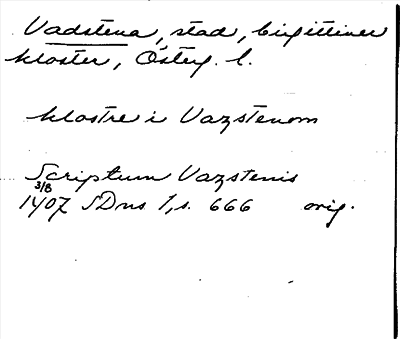 Vadstena, stad, birgittiner
kloster, Österg. l.
klostre i Vazstenom
Scriptum Vazstenis
3/8
1407 SDns 1, s. 666 orig.